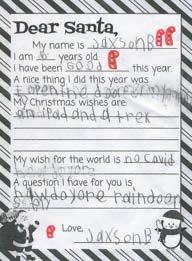 Dear Santa,
My name is JaxsonB
I am 6 years old
I have been GOOD this year.
A nice thing I did this year was
I open the door for mom
My Christmas wishes are:
an ipad and a trex
My wish for the world is no covid
A question I have for you is
how do yore raindeer
Love, JaxsonB